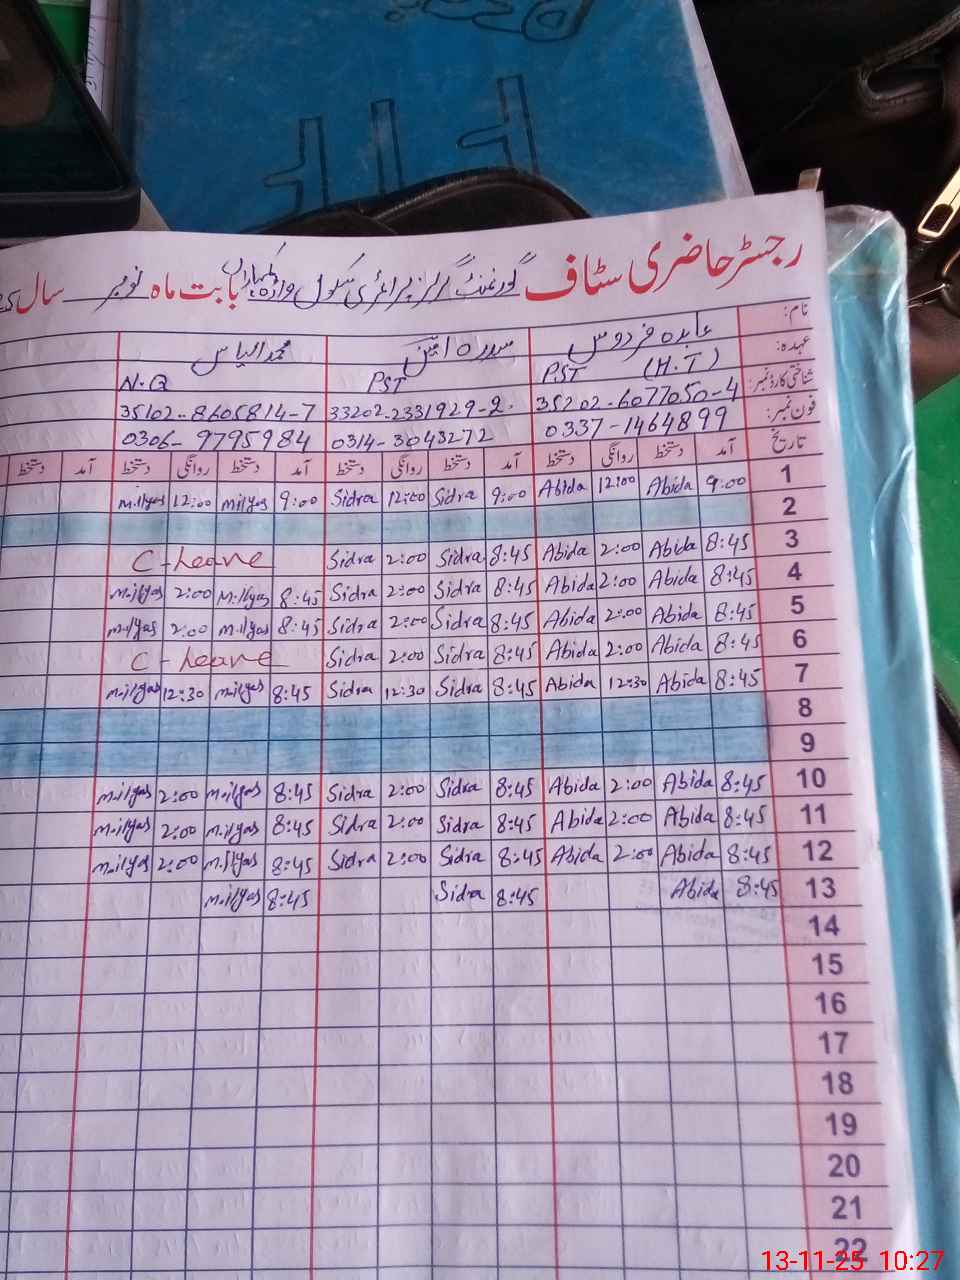 رجسٹر حاضری سٹاف گورنمنٹ گرلز پرائمری سکول بابت ماہ نومبر سال
نام: عابدہ فردوس سدرہ امین محمد الیاس
عہدہ: PST (H.T) PST N.Q
شناختی کارڈ نمبر: 35202-6077050-4 33202-2331929-2 35102-8605814-7
فون نمبر: 0337-1464899 0314-3043272 0306-9795984
تاریخ آمد دستخط روانگی دستخط آمد دستخط روانگی دستخط آمد دستخط روانگی دستخط آمد دستخط
1 9:00 Abida 12:00 Abida 9:00 Sidra 12:00 Sidra 9:00 M.ilyas 12:00 M.ilyas
2
3 8:45 Abida 2:00 Abida 8:45 Sidra 2:00 Sidra C-Leave
4 8:45 Abida 2:00 Abida 8:45 Sidra 2:00 Sidra 8:45 M.ilyas 2:00 M.ilyas
5 8:45 Abida 2:00 Abida 8:45 Sidra 2:00 Sidra 8:45 M.ilyas 2:00 M.ilyas
6 8:45 Abida 2:00 Abida 8:45 Sidra 2:00 Sidra C-Leave
7 8:45 Abida 12:30 Abida 8:45 Sidra 12:30 Sidra 8:45 M.ilyas 12:30 M.ilyas
8
9
10 8:45 Abida 2:00 Abida 8:45 Sidra 2:00 Sidra 8:45 M.ilyas 2:00 M.ilyas
11 8:45 Abida 2:00 Abida 8:45 Sidra 2:00 Sidra 8:45 M.ilyas 2:00 M.ilyas
12 8:45 Abida 2:00 Abida 8:45 Sidra 2:00 Sidra 8:45 M.ilyas 2:00 M.ilyas
13 8:45 Abida 8:45 Sidra 8:45 M.ilyas
14
15
16
17
18
19
20
21
22
13-11-25 10:27